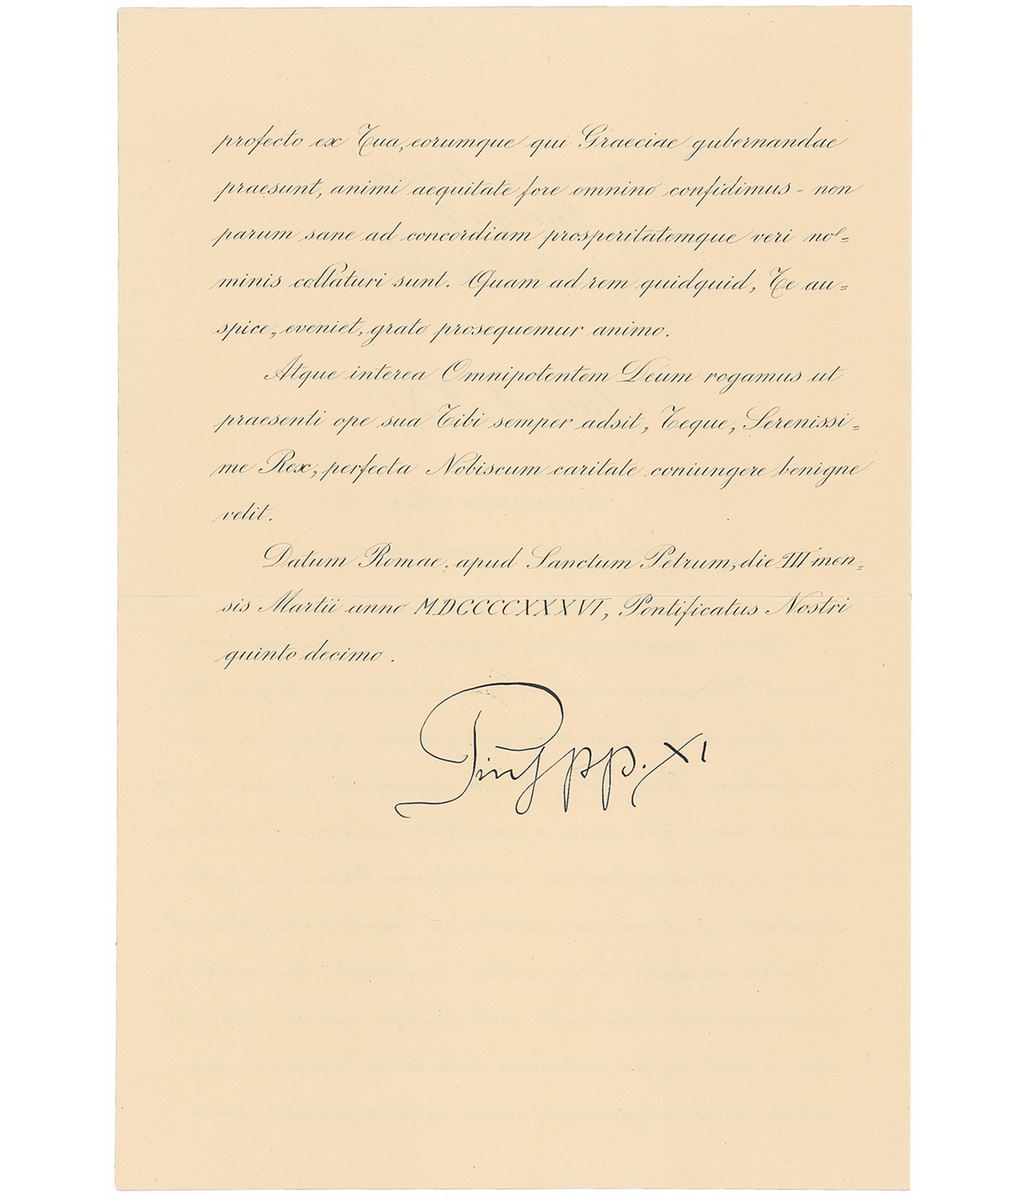 profecto ex Tua, eorumque qui Graeciae gubernandae
praesunt, animi aequitate fore omnino confidimus - non
parum sane ad concordiam prosperitatemque veri no=
minis collaturi sunt. Quam ad rem quidquid, Te au=
spice, eveniet, grato prosequemur animo.
Atque interea Omnipotentem Deum rogamus ut
praesenti ope sua Tibi semper adsit, Teque, Serenissi=
me Rex, perfecta Nobiscum caritate coniungere benigne
velit.
Datum Romae, apud Sanctum Petrum, die III men=
sis Martii anno MDCCCCXXXVI, Pontificatus Nostri
quinto decimo.
Pius pp. XI